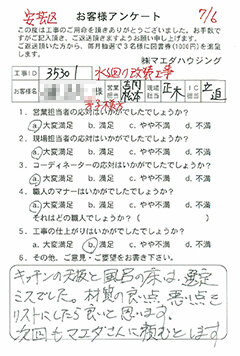 安芸区 お客様アンケート 7/6
この度は工事のご用命を頂きありがとうございました。お手数で
すがご記入頂き、ご返送頂きますようお願い申し上げます。
ご返送頂いた方から、毎月抽選で3名様に図書券(1000円)を進呈
します。
㈱マエダハウジング
工事ID 35301 水回り改装工事
お客様名 様 営業担当 松本 現場担当 正木 工事
1. 営業担当者の応対はいかがでしたでしょうか?
a. 大変満足 b. 満足 c. やや不満 d. 不満
2. 現場担当者の応対はいかがでしたでしょうか?
a. 大変満足 b. 満足 c. やや不満 d. 不満
3. コーディネーターの応対はいかがでしたでしょうか?
a. 大変満足 b. 満足 c. やや不満 d. 不満
4. 職人のマナーはいかがでしたでしょうか?
a. 大変満足 b. 満足 c. やや不満 d. 不満
それはどの職人でしょうか?( )
5. 工事の仕上がりはいかがでしたでしょうか?
a. 大変満足 b. 満足 c. やや不満 d. 不満
6. その他、ご意見・ご要望をお書き下さい。
キッチンの天板と風呂の床は、選定
ミスでした。材質の良い点、悪い点を
リストにしたら良いと思います。
次回もマエダさんに頼むとします